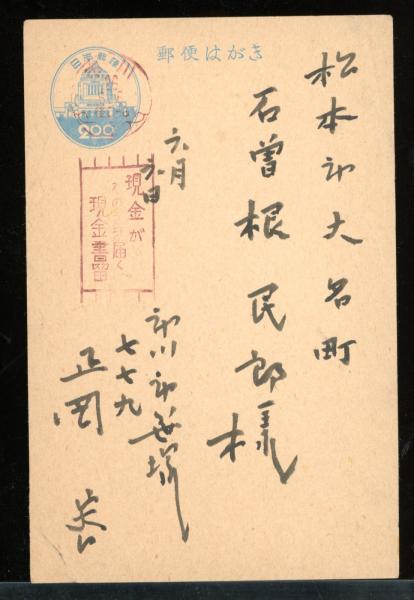 郵便はがき
日本郵便
2.00
松本市大名町
石曽根民郎様
六月
六日
現金が
そのまま届く
現金書留
市川市菅塚
七七九
正岡